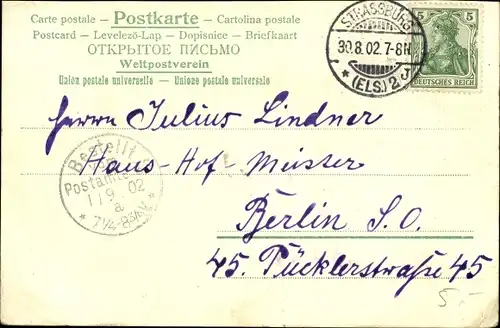 Carte postale – Postkarte – Cartolina postale
Postcard – Levelező-Lap – Dopisnice – Briefkaart
ОТКРЫТОЕ ПИСЬМО
Weltpostverein
Union postale universelle – Unione postale universale
STRASSBURG
30.8.02.7-8N
* (ELS.) 2 c
5 5
DEUTSCHES REICH
Herrn Julius Lindner
Haus-Hof Meister
Berlin S.O.
45. Pücklerstraße 45
Bestellt
Postamte
1/9 02
a
* 7¼-8¾V *
5.-